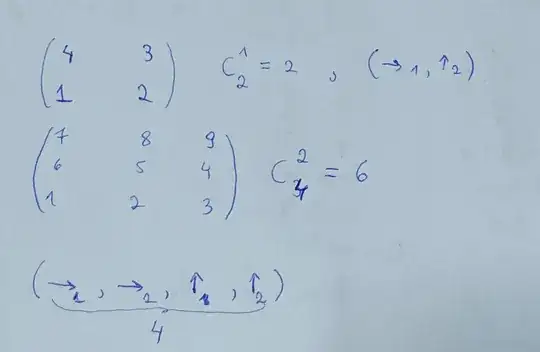 ( 4 3
1 2 ) C₂¹ = 2 , (→₁, ↑₂)
( 7 8 9
6 5 4
1 2 3 ) C₄² = 6
(→₁, →₂, ↑₁, ↑₂)
4